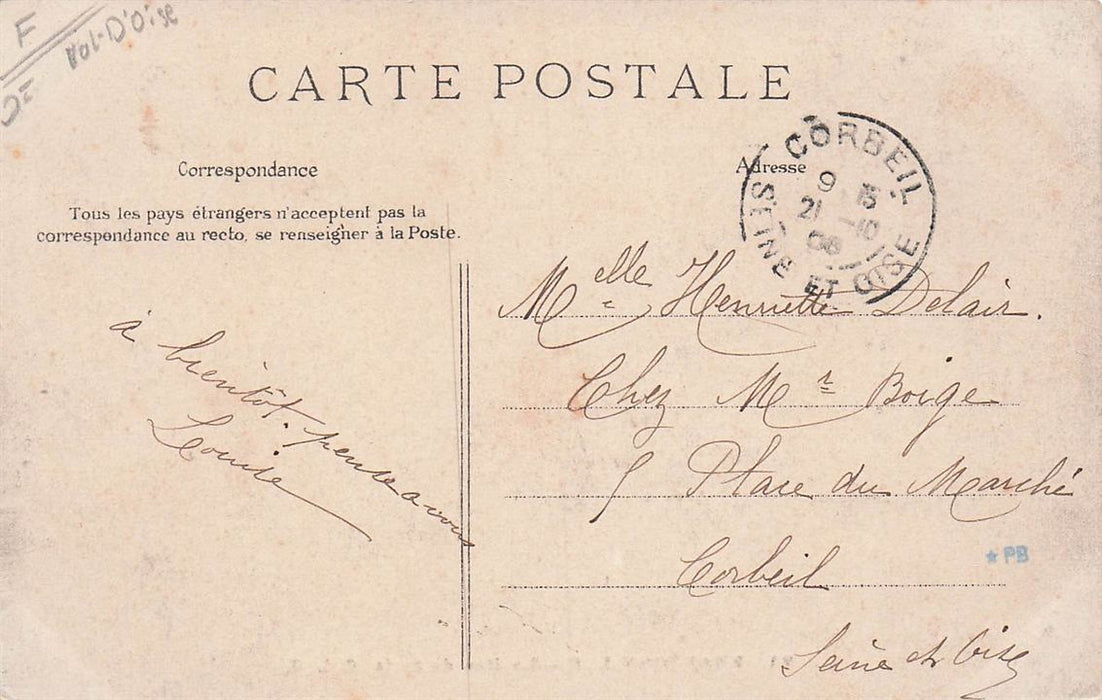 F
Val-D'Oise
CARTE POSTALE
Correspondance
Adresse
Tous les pays étrangers n'acceptent pas la
correspondance au recto, se renseigner à la Poste.
CORBEIL
9
21 -10
08
SEINE ET OISE
à bientôt. pense a vous
Louise
Melle Henriette Delair.
Chez Mr Boige
5 Place du Marché
Corbeil
Seine et Oise
★PB